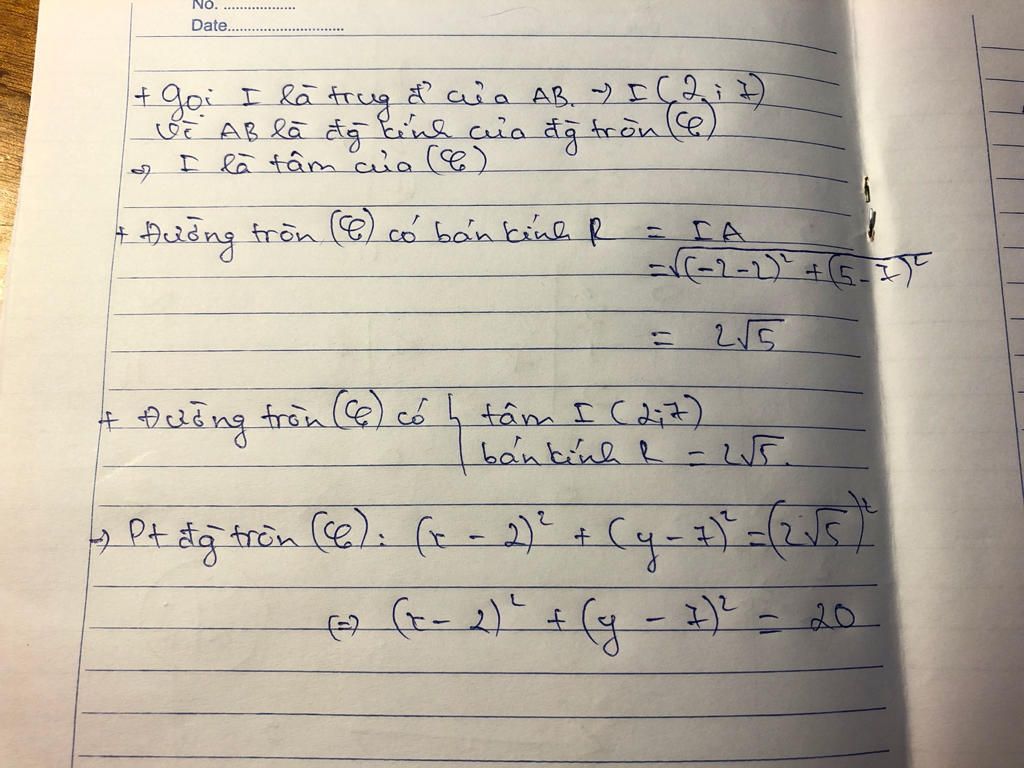 No. ..................
Date.............................
+ Gọi I là trug đ² của AB. → I(2; 7)
Vì AB là đg̀ kính của đg̀ tròn (C)
⇒ I là tâm của (C)
+ Đường tròn (C) có bán kính R = IA
= √((-2-2)² + (5-7)²)
= 2√5
+ Đường tròn (C) có { tâm I (2;7)
bán kính R = 2√5.
→ Pt đg̀ tròn (C): (x - 2)² + (y - 7)² = (2√5)²
(=) (x - 2)² + (y - 7)² = 20